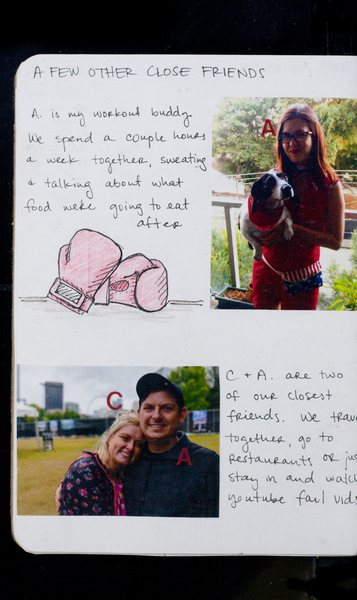 A FEW OTHER CLOSE FRIENDS
A. is my workout buddy
We spend a couple hours
a week together, sweating
+ talking about what
food we're going to eat
after
A
C
A
C + A. are two
of our closest
friends. We trav
together, go to
restaurants or jus
stay in and watch
youtube fail vids